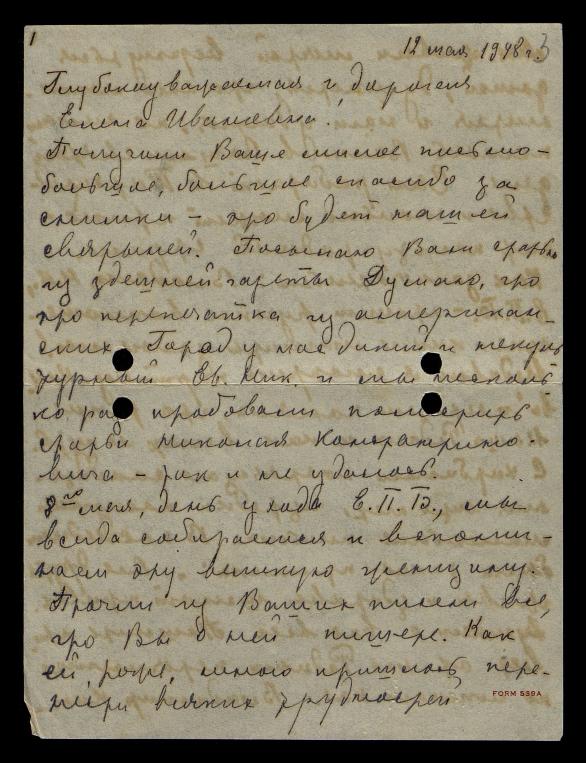 1
12 мая 1948 г. 3
Глубокоуважаемая и дорогая
Елена Ивановна.
Получили Ваше милое письмо –
большое, большое спасибо за
снимки – это будет нашей
святыней. Посылаю Вам статью
из здешней газеты Думаю, что
это перепечатка из американ-
ских Город у нас дикий и некуль
турный Ев. Ник. и мы несколь
ко раз пробовали поместить
статьи Николая Константино-
вича – так и не удалось.
8го мая, день ухода Е.П.Б., мы
всегда собираемся и вспоми-
наем эту великую женщину.
Прочли из Ваших писем все,
что Вы о ней пишете. Как
ей, тоже, много пришлось пере-
нести всяких трудностей
FORM 539A